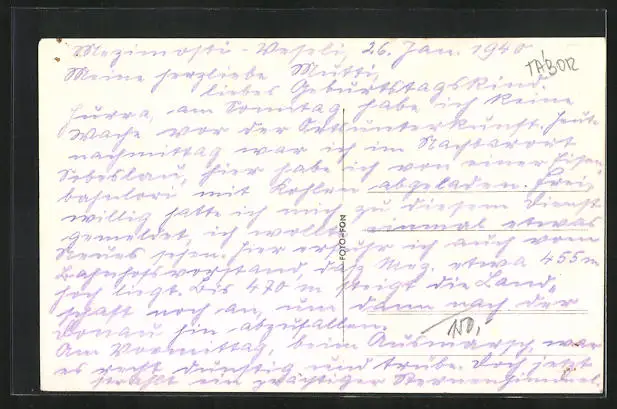 Mezimosti - Veseli, 26. Jan. 1940
TÁBOR
Meine herzliebe Mutti,
liebes Geburtstagskind.
Hurra, am Sonntag habe ich keine
Wache vor der Ortsunterkunft. Heute
nachmittag war ich im Nachbarort
hier habe ich von einer Eisen-
bahnlori mit Kohlen abgeladen. Frei-
willig hatte ich mich zu diesem Dienst
gemeldet, ich wollte einmal etwas
Neues sehen. Hier erfuhr ich auch vom
Bahnhofsvorstand, daß Mez. etwa 455 m
hoch liegt. Bis 470 m steigt die Land-
schaft noch an, um dann nach der
Donau hin abzufallen.
Am Vormittag, beim Ausmarsch, war
es recht dunstig und trübe. Doch jetzt
strahlt ein prächtiger Sternenhimmel.
FOTO-FON
150,